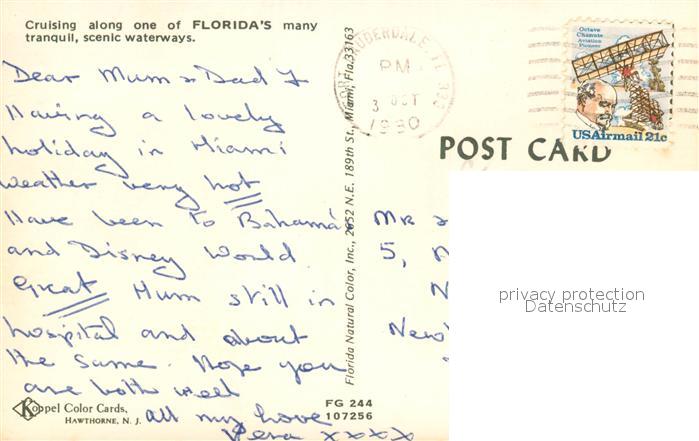 Cruising along one of FLORIDA'S many
tranquil, scenic waterways.
Dear Mum & Dad
Having a lovely
holiday in Miami
weather very hot
Have been to Bahama's
and Disney World
Great Mum still in
hospital and about
the same. Hope you
are both well
all my love
Vera xxxx
Koppel Color Cards,
HAWTHORNE, N. J.
FG 244
107256
Florida Natural Color, Inc., 2652 N.E. 189th St., Miami, Fla. 33163
LAUDERDALE, FL 333
PM
3 OCT
1980
Octave
Chanute
Aviation
Pioneer
USAirmail 21c
POST CARD
MR &
5,
N
New
privacy protection
Datenschutz